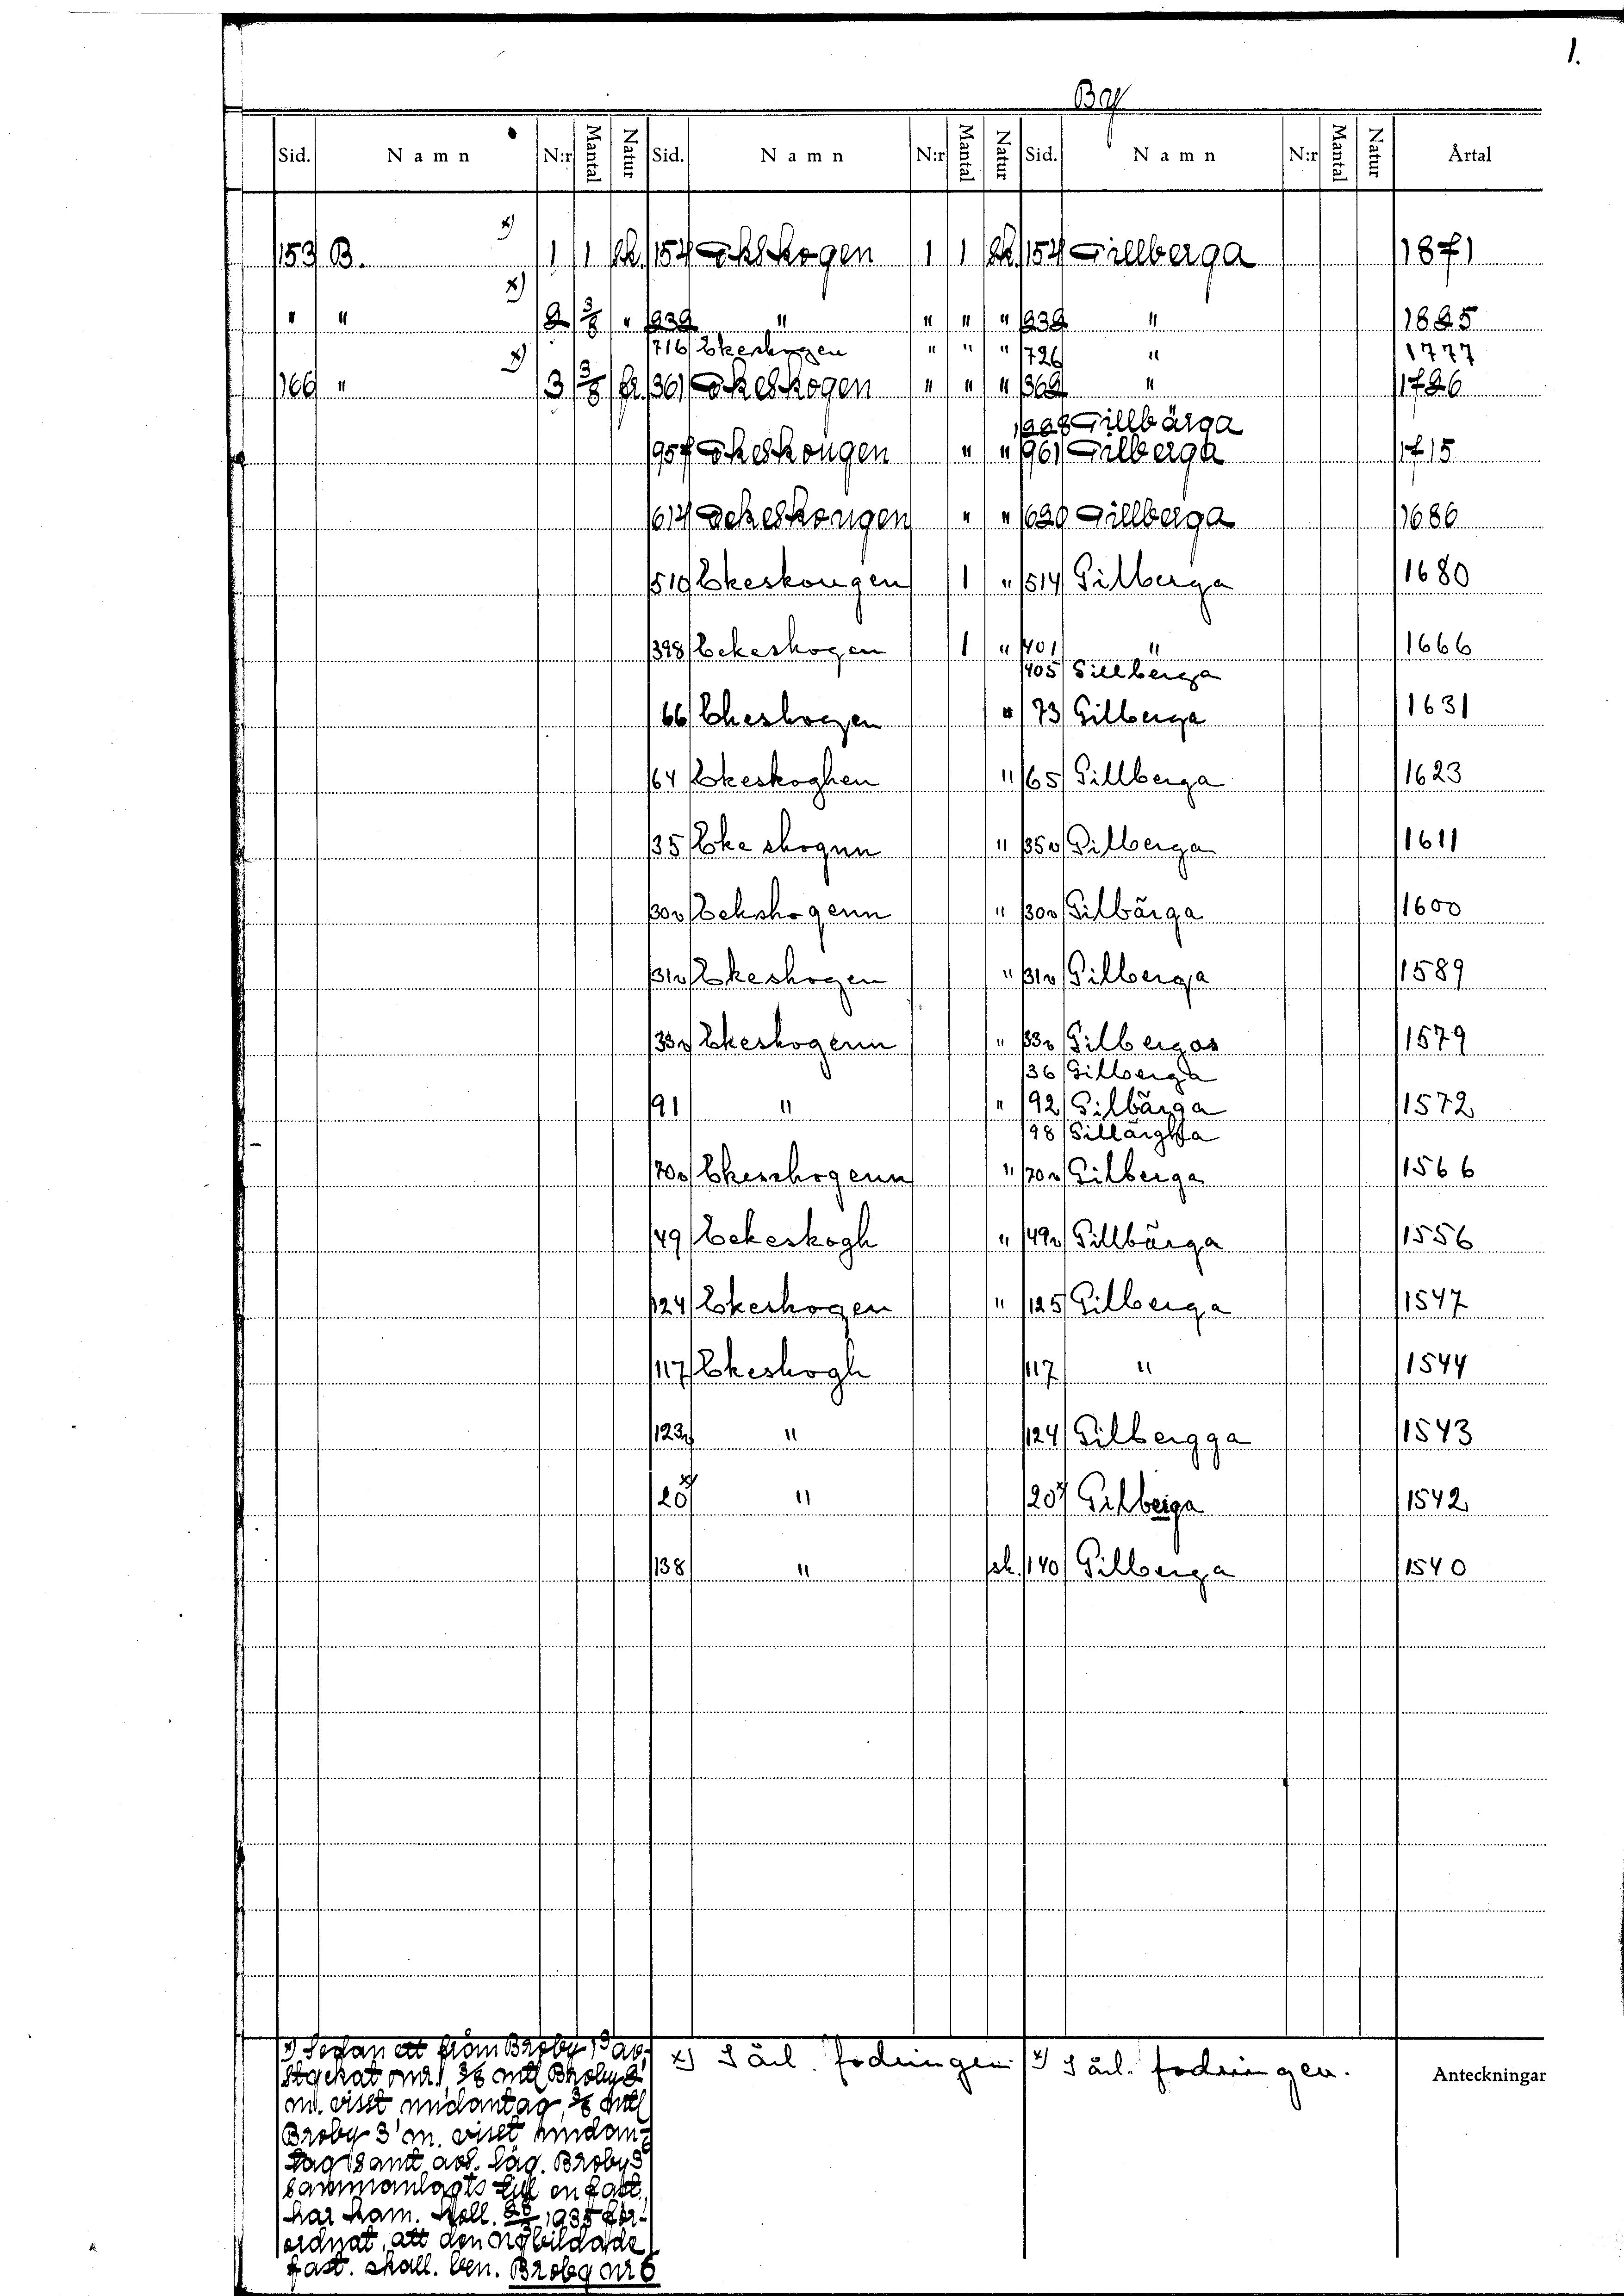 1.
By
Sid. Namn N:r Mantal Natur Sid. Namn N:r Mantal Natur Sid. Namn N:r Mantal Natur Årtal
153 B. x) 1 1 sk. 154 Ekskogen 1 1 sk. 154 Gillberga 1871
" " x) 2 3/8 " 232 " " " " 232 " 1825
716 Ekeskogen " " " 726 " 1777
166 " x) 3 3/8 fr. 361 Ekeskogen " " " 362 " 1726
1228 Gillbärga
957 Ekeskougen " " 961 Gilberga 1715
614 Eekeskougen " " 620 Gillberga 1686
510 Ekeskougen 1 " 514 Gilberga 1680
398 Eekeskogen 1 " 401 " 1666
405 Gillberga
66 Ekeskogen " 73 Gilberga 1631
64 Ekeskoghen " 65 Gillberga 1623
35 Eke skognn " 35v Gilberga 1611
30v Eekskogenn " 30v Gilbärga 1600
31v Ekeskogen " 31v Gilberga 1589
33v Ekeskogenn " 33v Gilbergas 1579
36 Gilberga
91 " " 92 Gilbärga 1572
98 Gillärgha
70v Ekesskogenn " 70v Gilberga 1566
49 Eekeskogh " 49v Gillbärga 1556
124 Ekeskogen " 125 Gilberga 1547
117 Ekeskogh 117 " 1544
123v " 124 Gilbergga 1543
20 x) " 20 x) Gilberga 1542
138 " sk. 140 Gilberga 1540
x) Sedan ett från Broby 1 av-
styckat omr., 3/8 mtl Broby 2
m. visst undantag, 3/8 mtl
Broby 3 m. visst undan-
tag samt avs. läg. Broby
sammanlagts till en fast.
har kam. koll. 1935 för-
ordnat, att den nybildade
fast. skall. ben. Broby nr 6
x) Särl. fodringen
x) Särl. fodringen.
Anteckningar